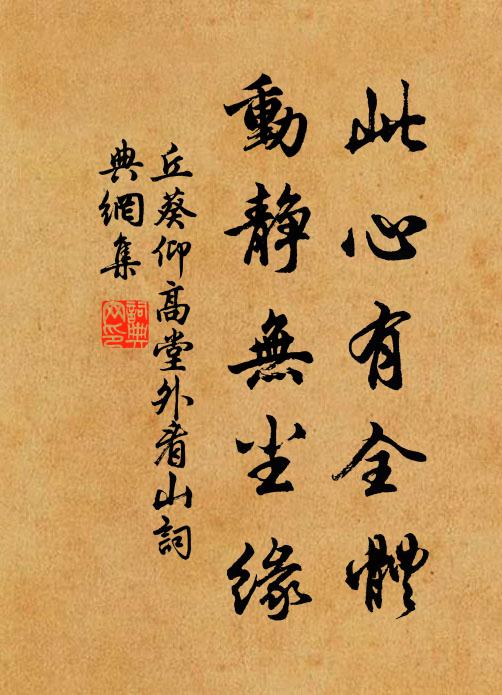 此心有全體
動静無尘緣
丘葵仰高堂外看山詞
典網集
詞典
网印